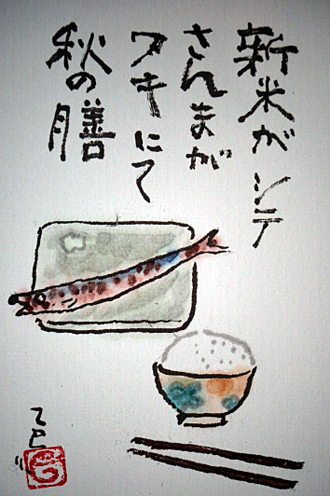 新米がシテ
さんまが
ワキにて
秋の膳